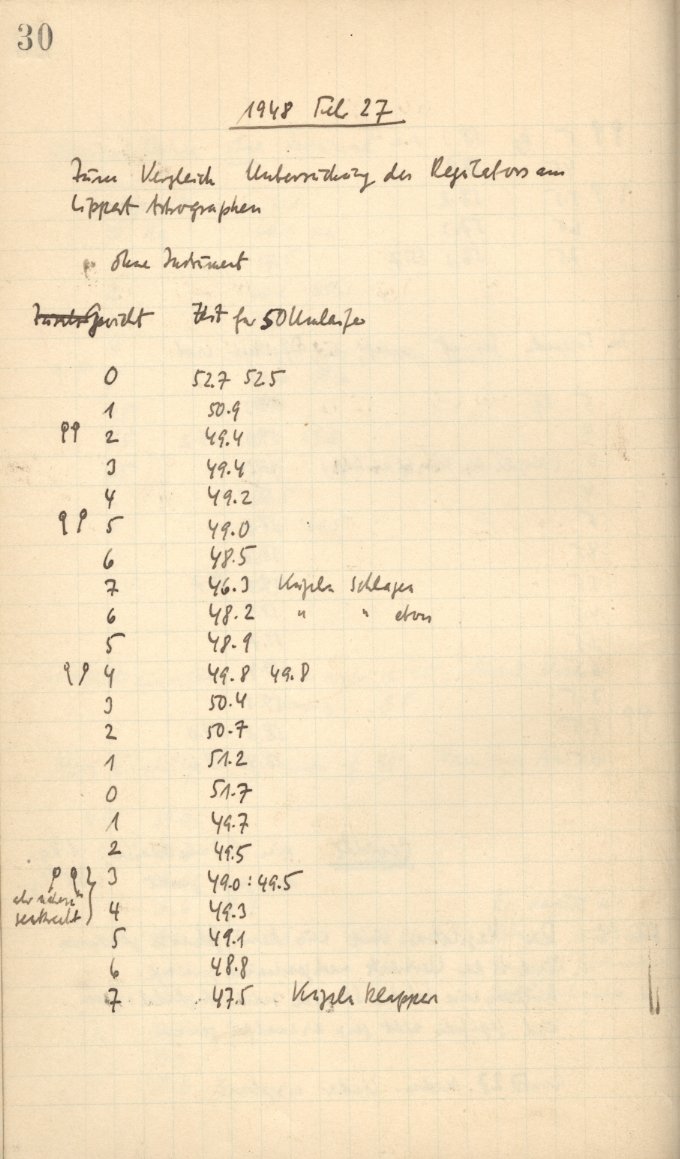 30
1948 Febr 27
Zum Vergleich Untersuchung des Regulators am
Lippert Astrographen
ohne Instrument
Gewicht Zeit für 50 Umläufe
0 52.7 52.5
1 50.9
2 49.4
3 49.4
4 49.2
5 49.0
6 48.5
7 46.3 Kugeln schlagen
6 48.2 " " etwas
5 48.9
4 49.8 49.8
3 50.4
2 50.7
1 51.2
0 51.7
1 49.7
2 49.5
3 49.0 : 49.5
senkrecht
4 49.3
5 49.1
6 48.8
7 47.5 Kugeln klappen